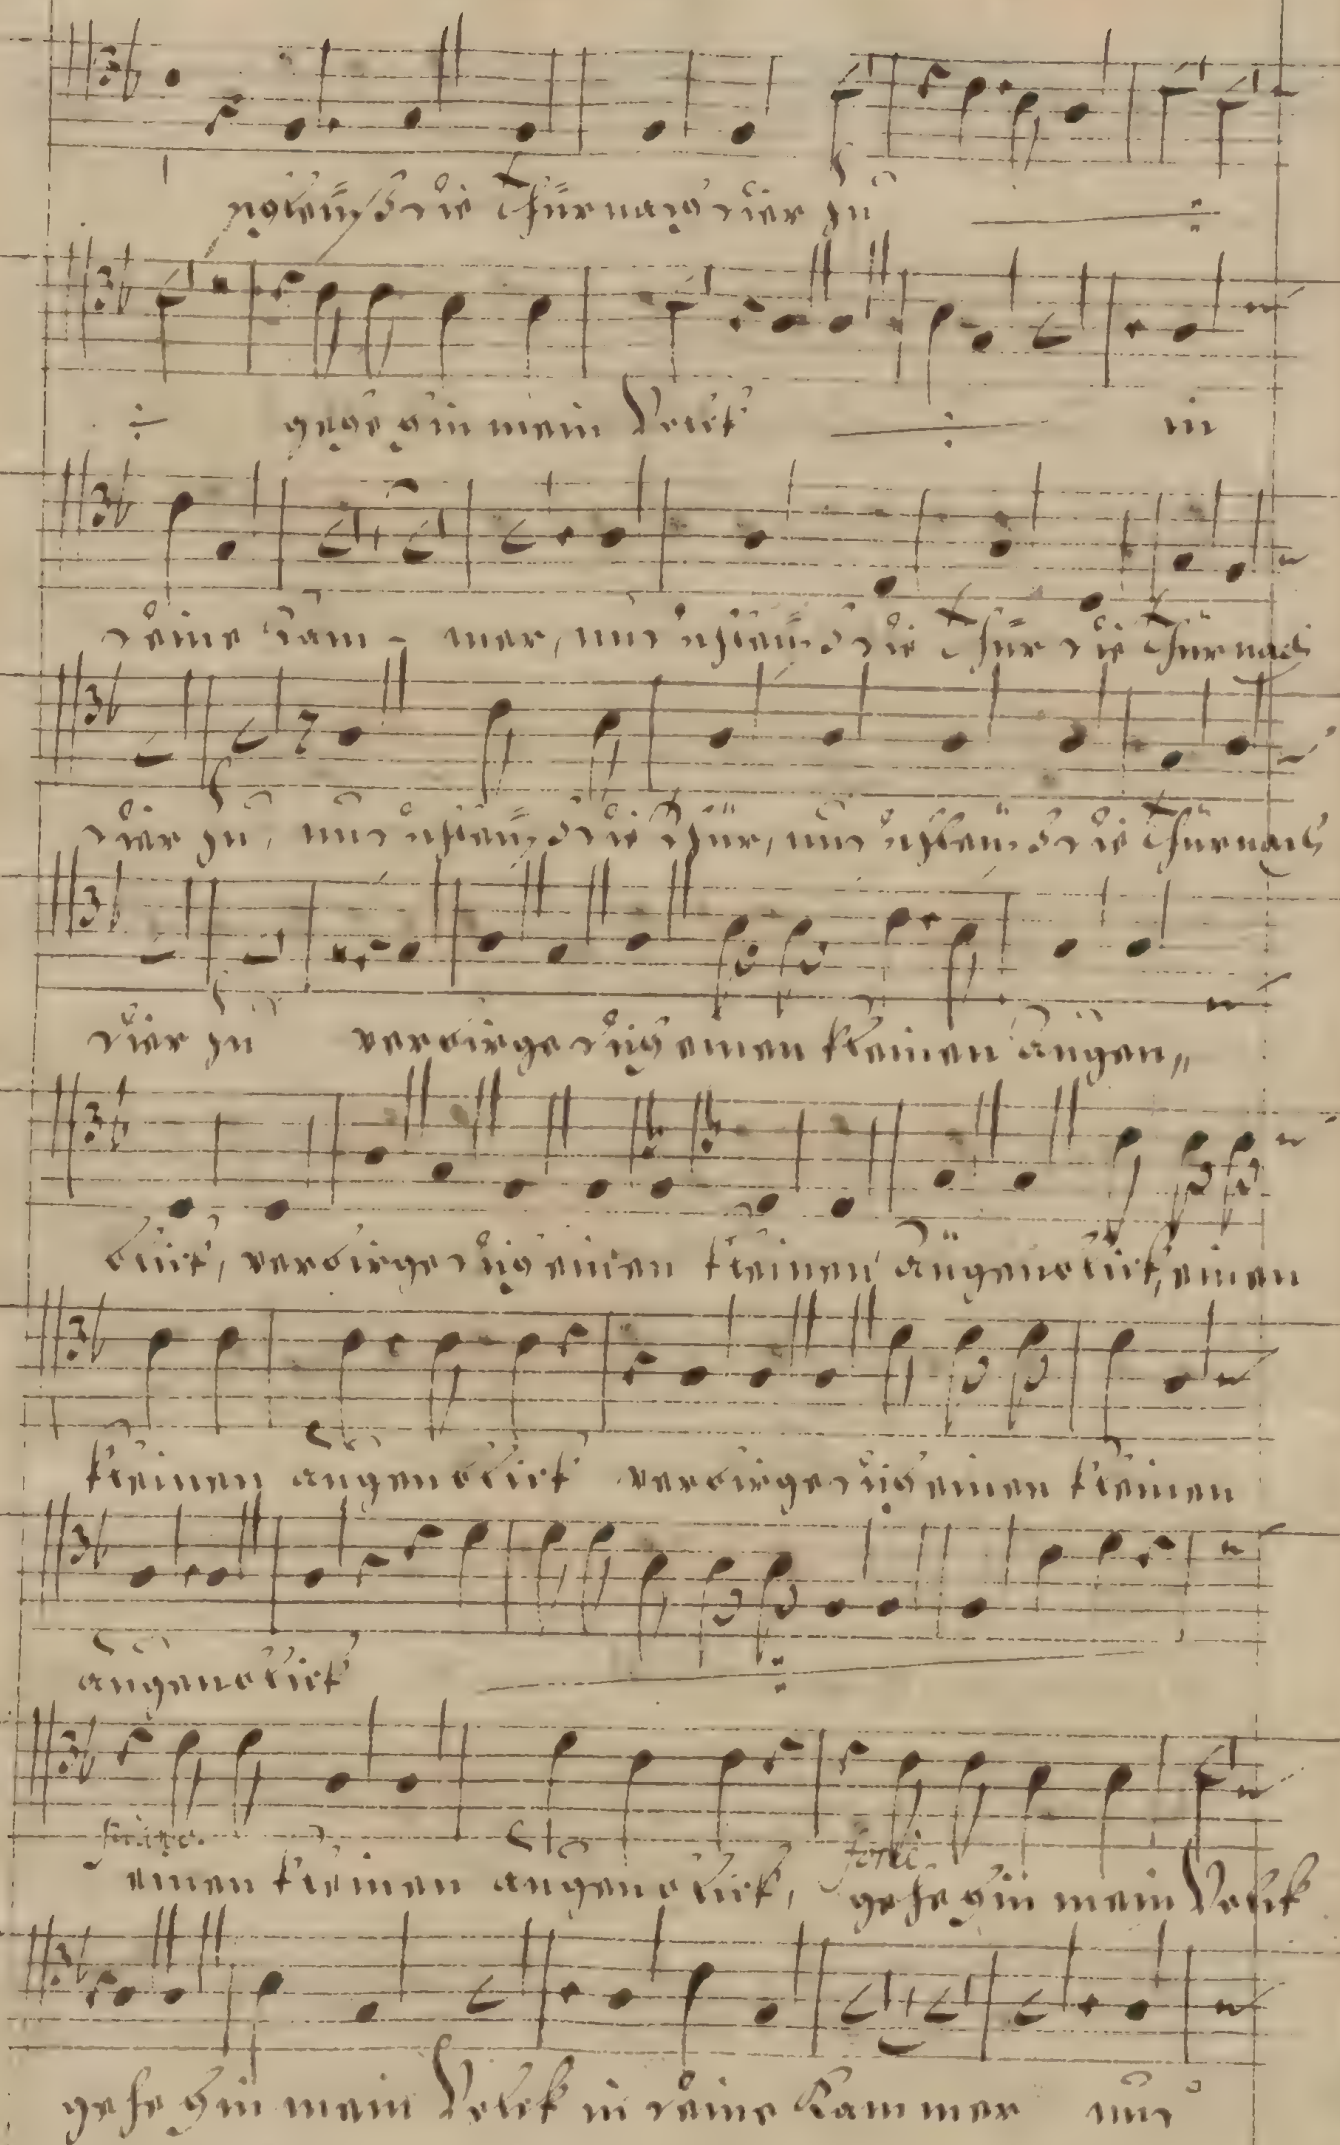 schleuß die Thür nach dier zu
gehe hin mein Volck in
deine Kam - mer, und schleuß die Thür die Thür nach
dier zu, und schleuß die Thür, und schleuß die Thür nach
dier zu verbirge dich einen kleinen augen„
blick, verbirge dich einen kleinen augenblick, einen
kleinen augenblick verbirge dich einen kleinen
augenblick
einen kleinen augenblick, gehe hin mein Volck
gehe hin mein Volck in deine Kammer und